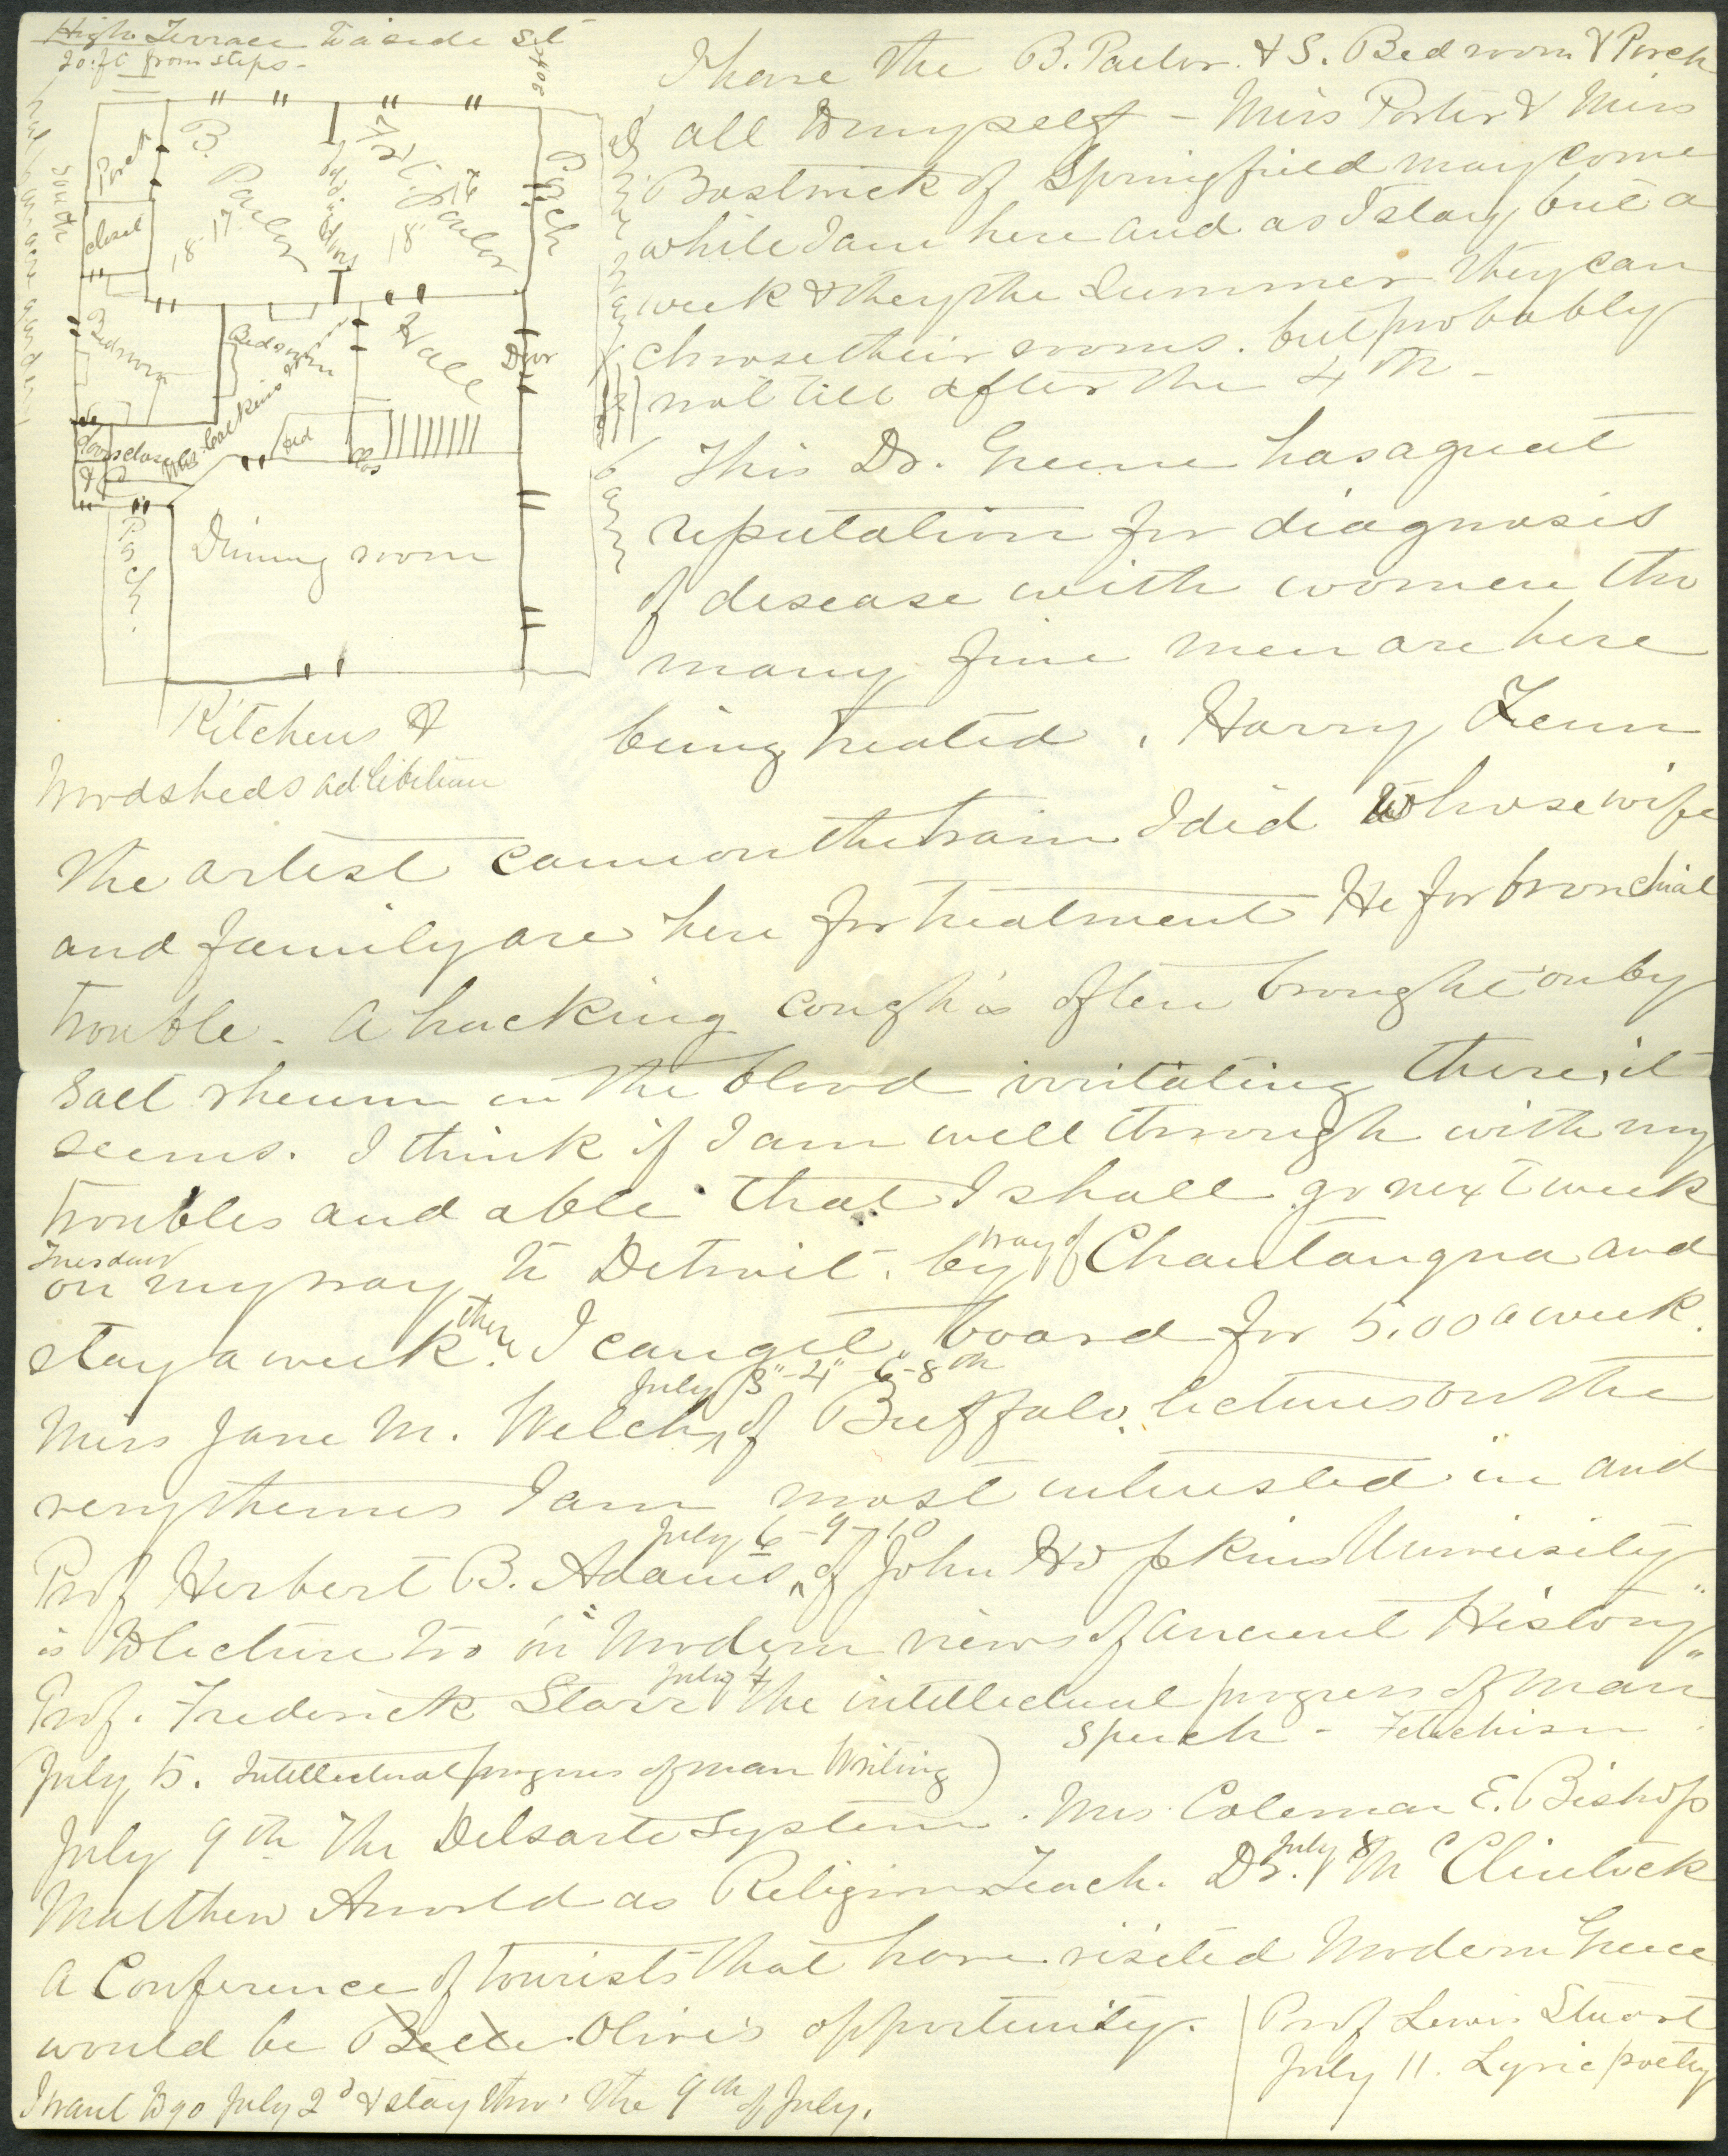 High Terrace to a side st
20 ft from steps -
South
Porch
closet
B. Parlor
18-17
folding doors
Frt. Parlor
18
Porch
Bedroom
Bedroom
Hall
Door
closet
bed
Clos
Porch.
Dining room
Kitchens &
Woodsheds ad libitum
I have the B. Parlor. & S. Bedroom & Porch
all to myself - Miss Porter & Miss
Bostwick of Springfield may come
while I am here and as I stay but a
week & they the Summer they can
choose their rooms. but probably
not till after the 4th -
This Dr. Greene has a great
reputation for diagnosis
of desease with women tho
many fine men are here
being treated. Harry Fenn
the artist came on the train I did whose wife
and family are here for treatment He for bronchial
trouble. A hacking cough is often brought on by
Salt rheum in the blood irritating there, it
seems. I think if I am well through with my
troubles and able that I shall go next week
Tuesday
on my way to Detroit. by way of Chautauqua and
stay a week there. I can get board for 5.00 a week.
July 3"-4"-6-8th
Miss Jane M. Welch, of Buffalo. lectures on the
very themes I am most interested in and
July 6-9-10
Prof Herbert B. Adams, of John Hopkins University
is to lecture too on "Modern views of Ancient History"
Prof. Frederick Starr July 4 the intellectual progress of man
Speech - Fetichism
July 5. Intellectual progress of man Writing)
July 9th The Delsarte System. Mrs. Coleman E. Bishop
Matthew Arnold as Religious Teach. Dr. July 8 McClintock
A Conference of tourists that have visited Modern Greece
would be Belle Olive's opportunity.
Prof Lewis Stuart
July 11. Lyric poetry
I want to go July 2d & stay thro' the 9th of July.